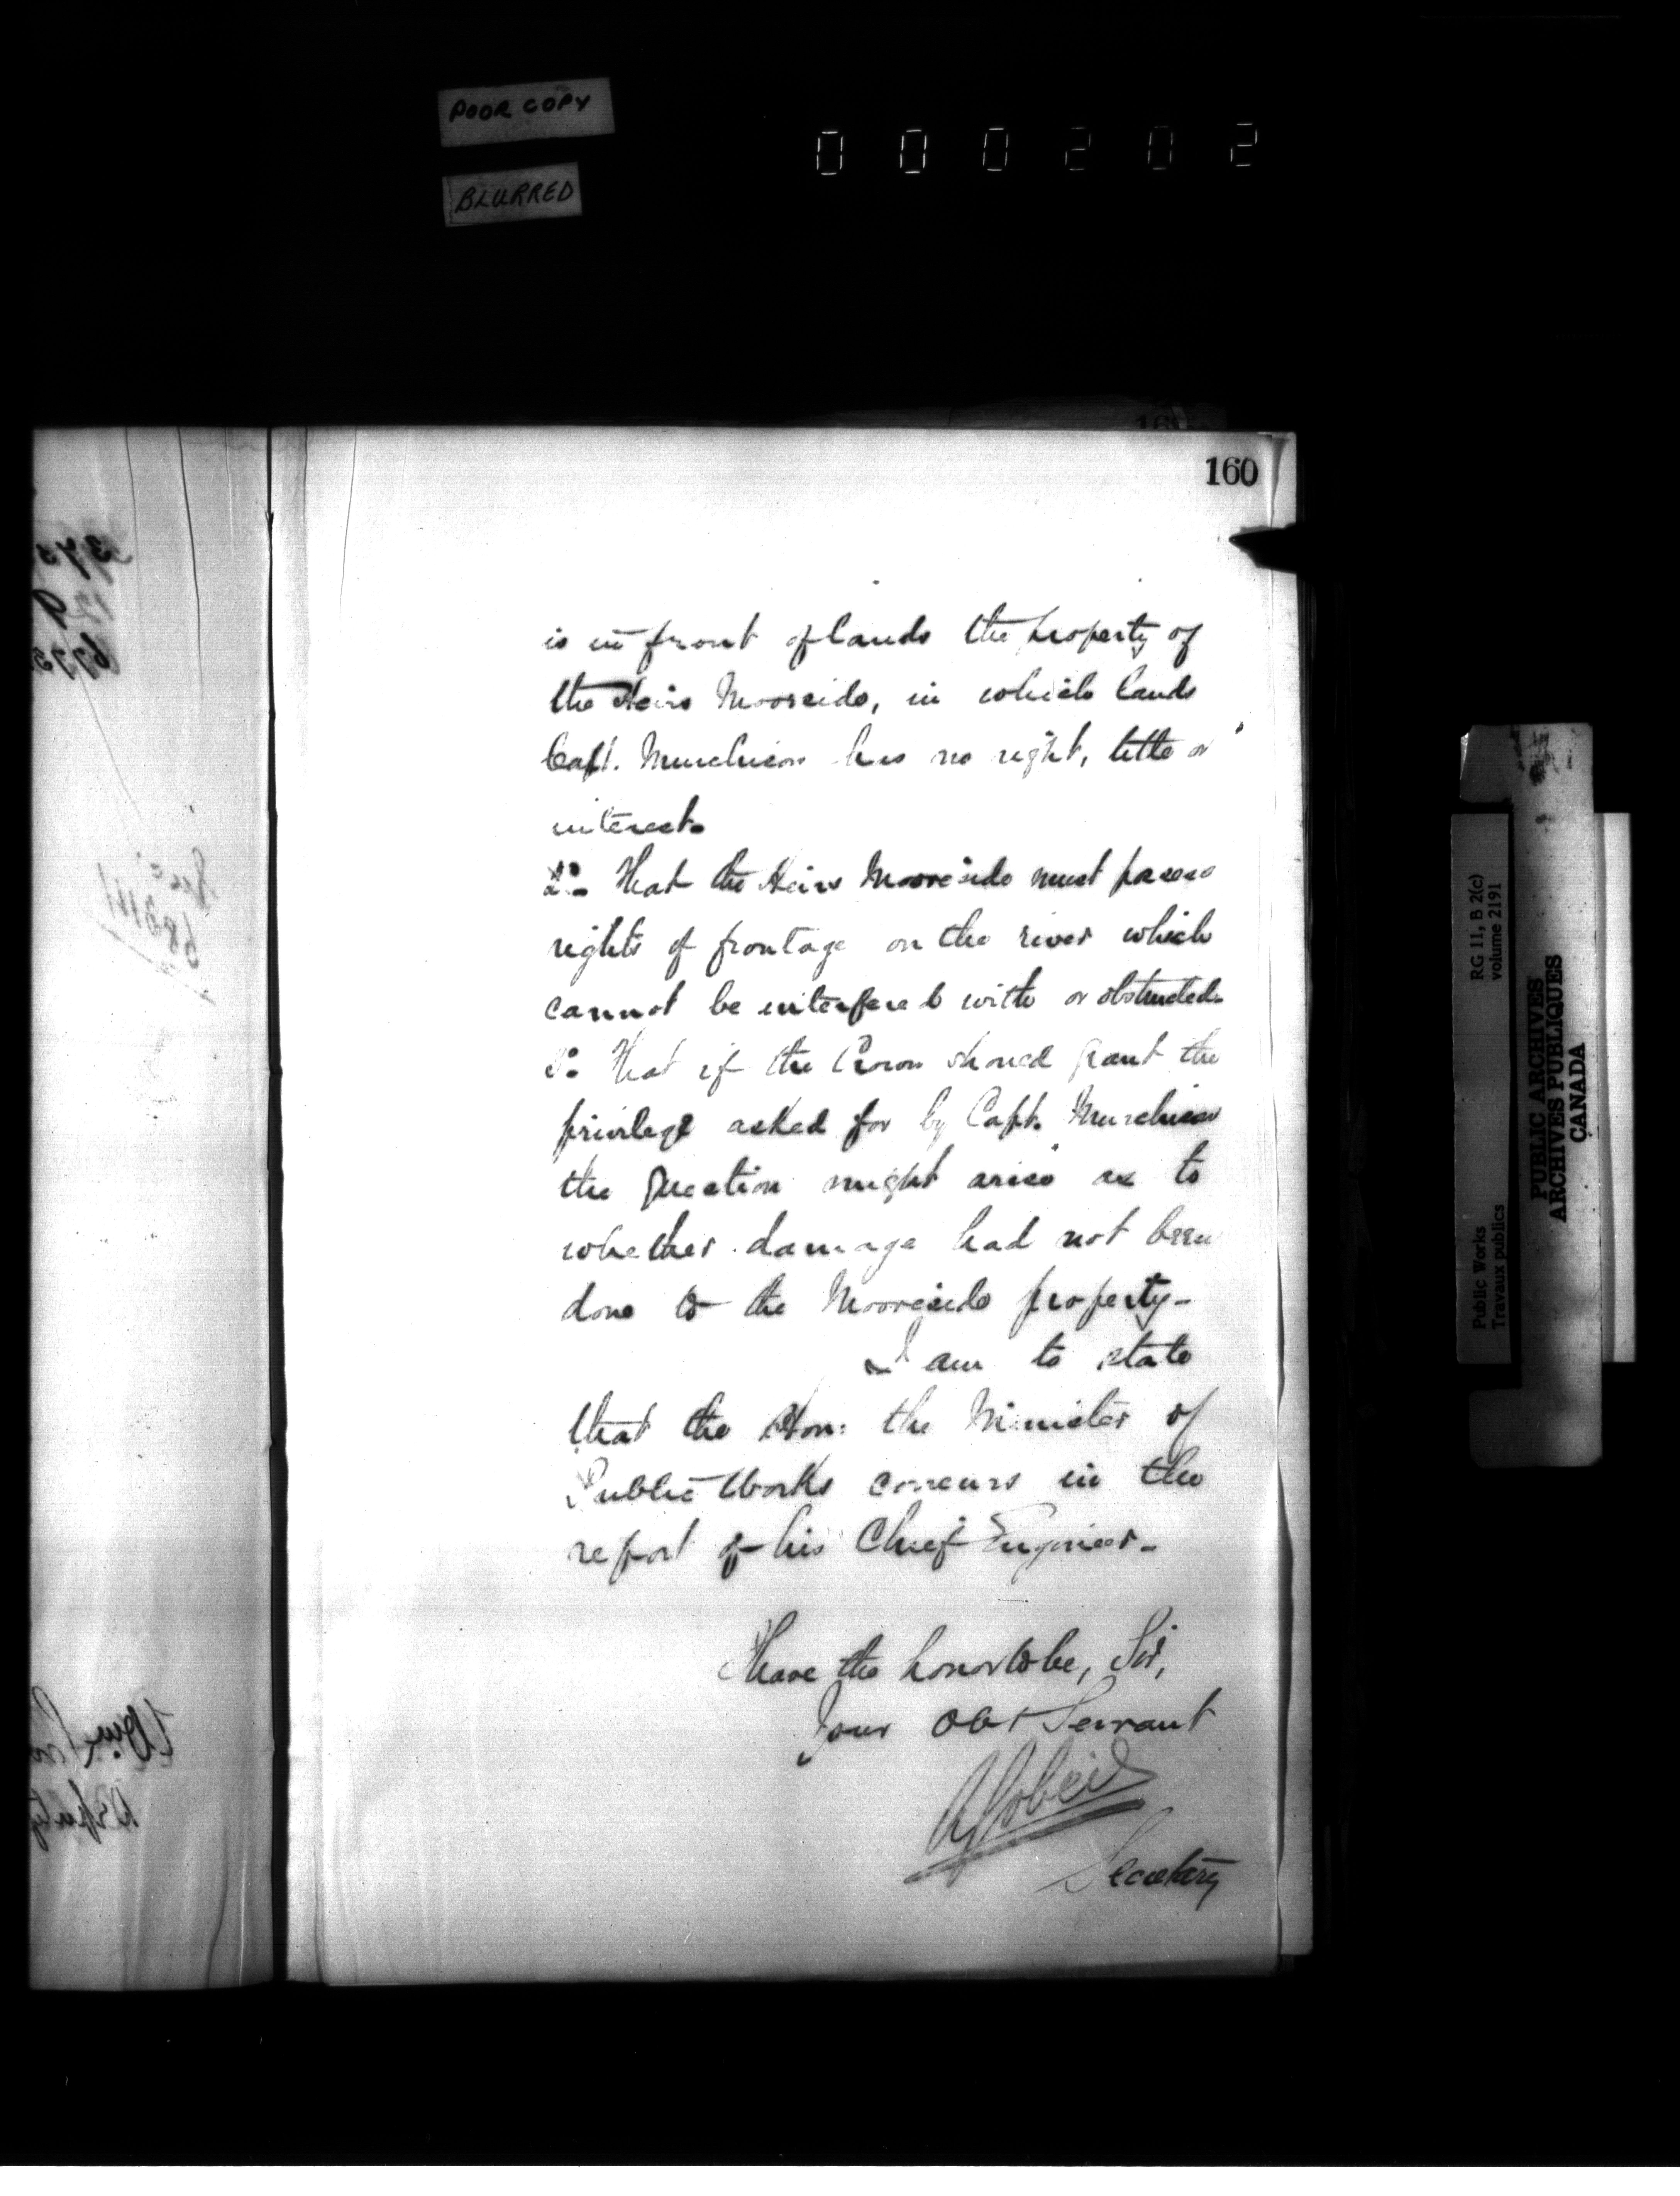 POOR COPY
BLURRED
000202
160
is in front of lands the property of
the Heirs Mooreside, in which lands
Capt. Murchison has no right, title or
interest.
2o. That the Heirs Mooreside must possess
rights of frontage on the river which
cannot be interfered with or obstructed.
3o. That if the Crown should grant the
privilege asked for by Capt. Murchison
the question might arise as to
whether damage had not been
done to the Mooreside property.
I am to state
that the Hon: the Minister of
Public Works concurs in the
report of his Chief Engineer.
I have the honor to be, Sir,
Your Obt Servant
A Gobeil
Secretary
Public Works
Travaux publics
RG 11, B 2(c)
volume 2191
PUBLIC ARCHIVES
ARCHIVES PUBLIQUES
CANADA